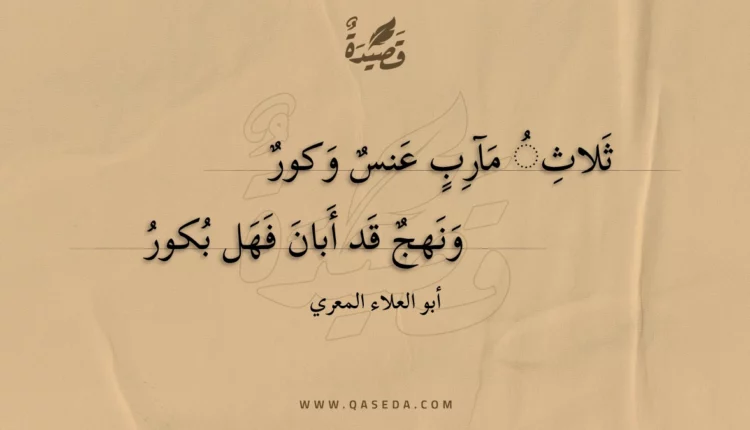 قَصِيدَةٌ
ثَلاثِ ُ مَآرِبٍ عَنسٌ وَكورٌ
وَنَهجٌ قَد أَبانَ فَهَل بُكورُ
أبو العلاء المعري
WWW.QASEDA.COM